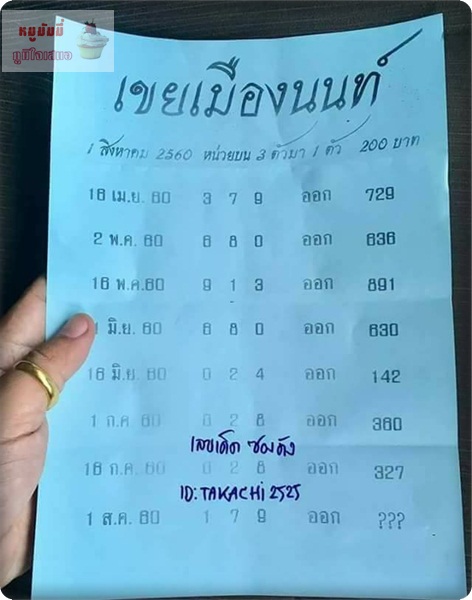 หมูบัมบี้
ภูมิใจเสนอ
เขยเมืองนนท์
1 สิงหาคม 2560 หน่วยบน 3 ตัวมา 1 ตัว 200 บาท
16 เม.ย. 60 3 7 9 ออก 729
2 พ.ค. 60 6 8 0 ออก 636
16 พ.ค.60 9 1 3 ออก 891
1 มิ.ย. 60 6 8 0 ออก 630
16 มิ.ย. 60 0 2 4 ออก 142
1 ก.ค 60 0 2 6 ออก 360
เลขเด็ด ซองดัง
16 ก.ค. 60 0 2 8 ออก 327
ID:TAKACHI2525
1 ส.ค. 60 1 7 9 ออก ???